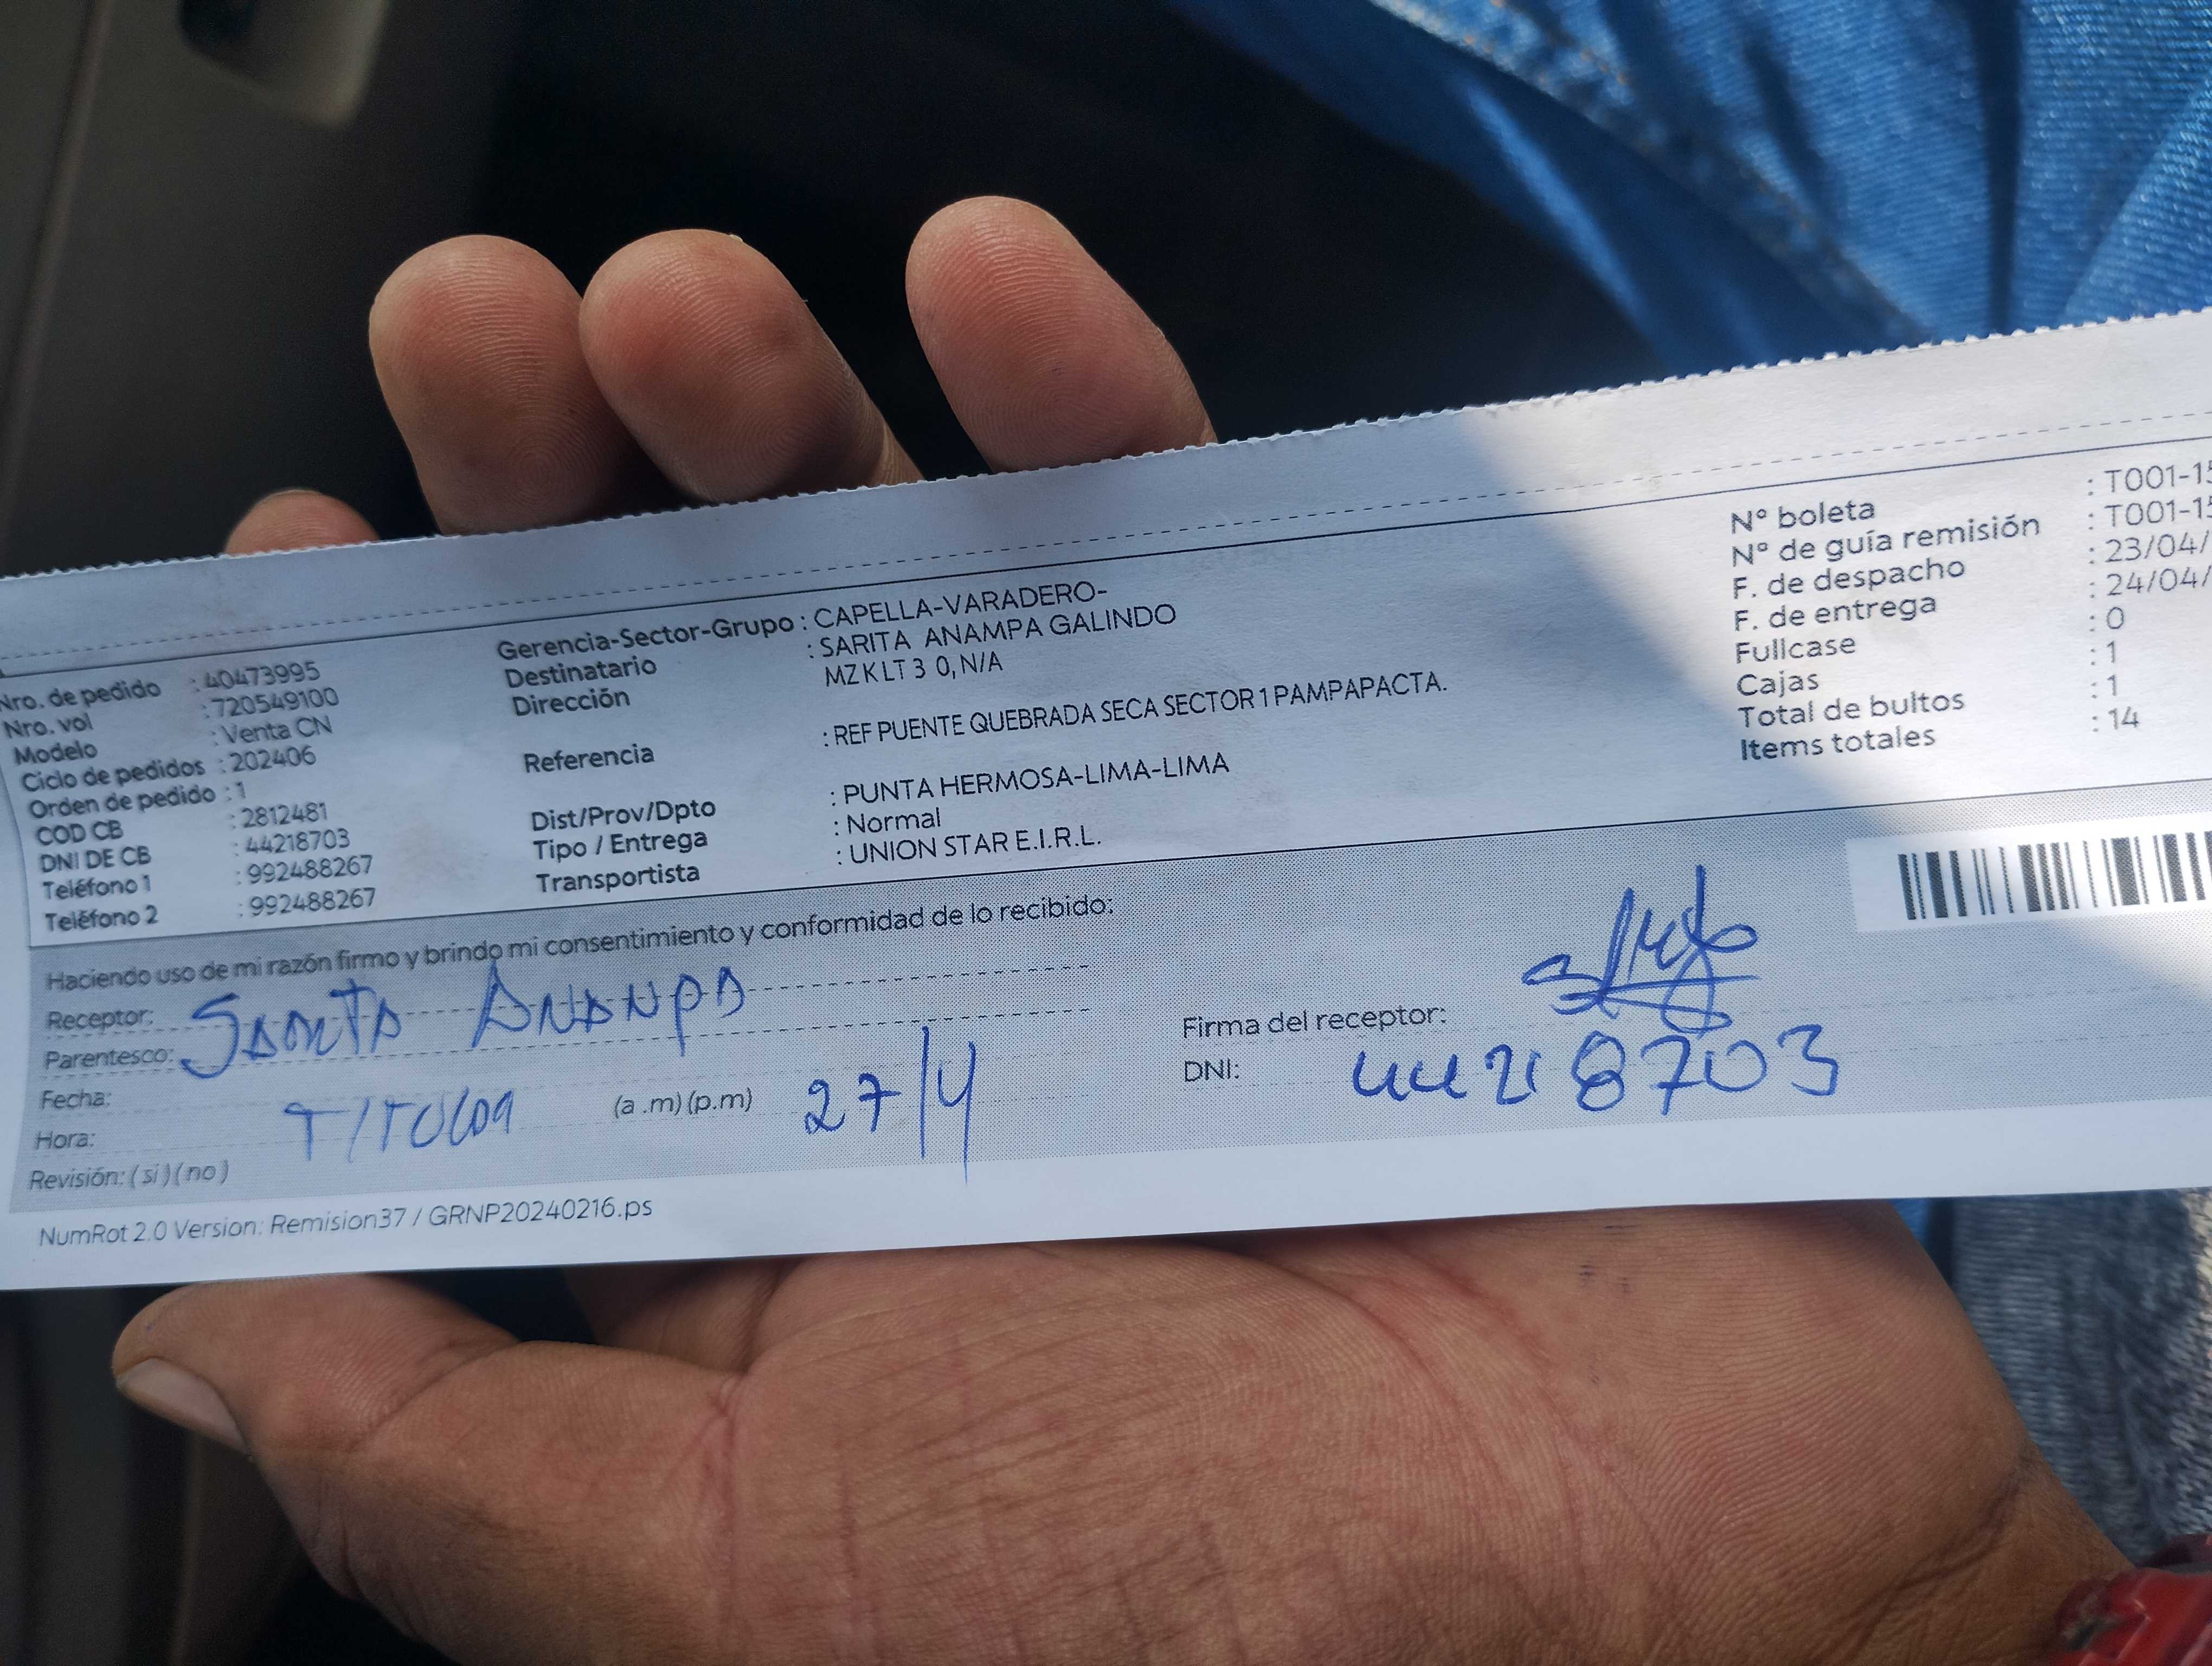 Nro. de pedido : 40473995
Nro. vol : 720549100
Modelo : Venta CN
Ciclo de pedidos : 202406
Orden de pedido : 1
COD CB : 2812481
DNI DE CB : 44218703
Teléfono 1 : 992488267
Teléfono 2 : 992488267
Gerencia-Sector-Grupo : CAPELLA-VARADERO-
Destinatario : SARITA ANAMPA GALINDO
Dirección MZ K LT 3 0, N/A
Referencia : REF PUENTE QUEBRADA SECA SECTOR 1 PAMPAPACTA.
Dist/Prov/Dpto : PUNTA HERMOSA-LIMA-LIMA
Tipo / Entrega : Normal
Transportista : UNION STAR E.I.R.L.
N° boleta : T001-15
N° de guía remisión : T001-15
F. de despacho : 23/04/
F. de entrega : 24/04/
Fullcase : 0
Cajas : 1
Total de bultos : 1
Items totales : 14
Haciendo uso de mi razón firmo y brindo mi consentimiento y conformidad de lo recibido:
Receptor:
Parentesco:
Fecha:
Hora: (a.m) (p.m) 27/4
Revisión: (si) (no)
Firma del receptor:
DNI: 44218703
NumRot 2.0 Version: Remision37 / GRNP20240216.ps